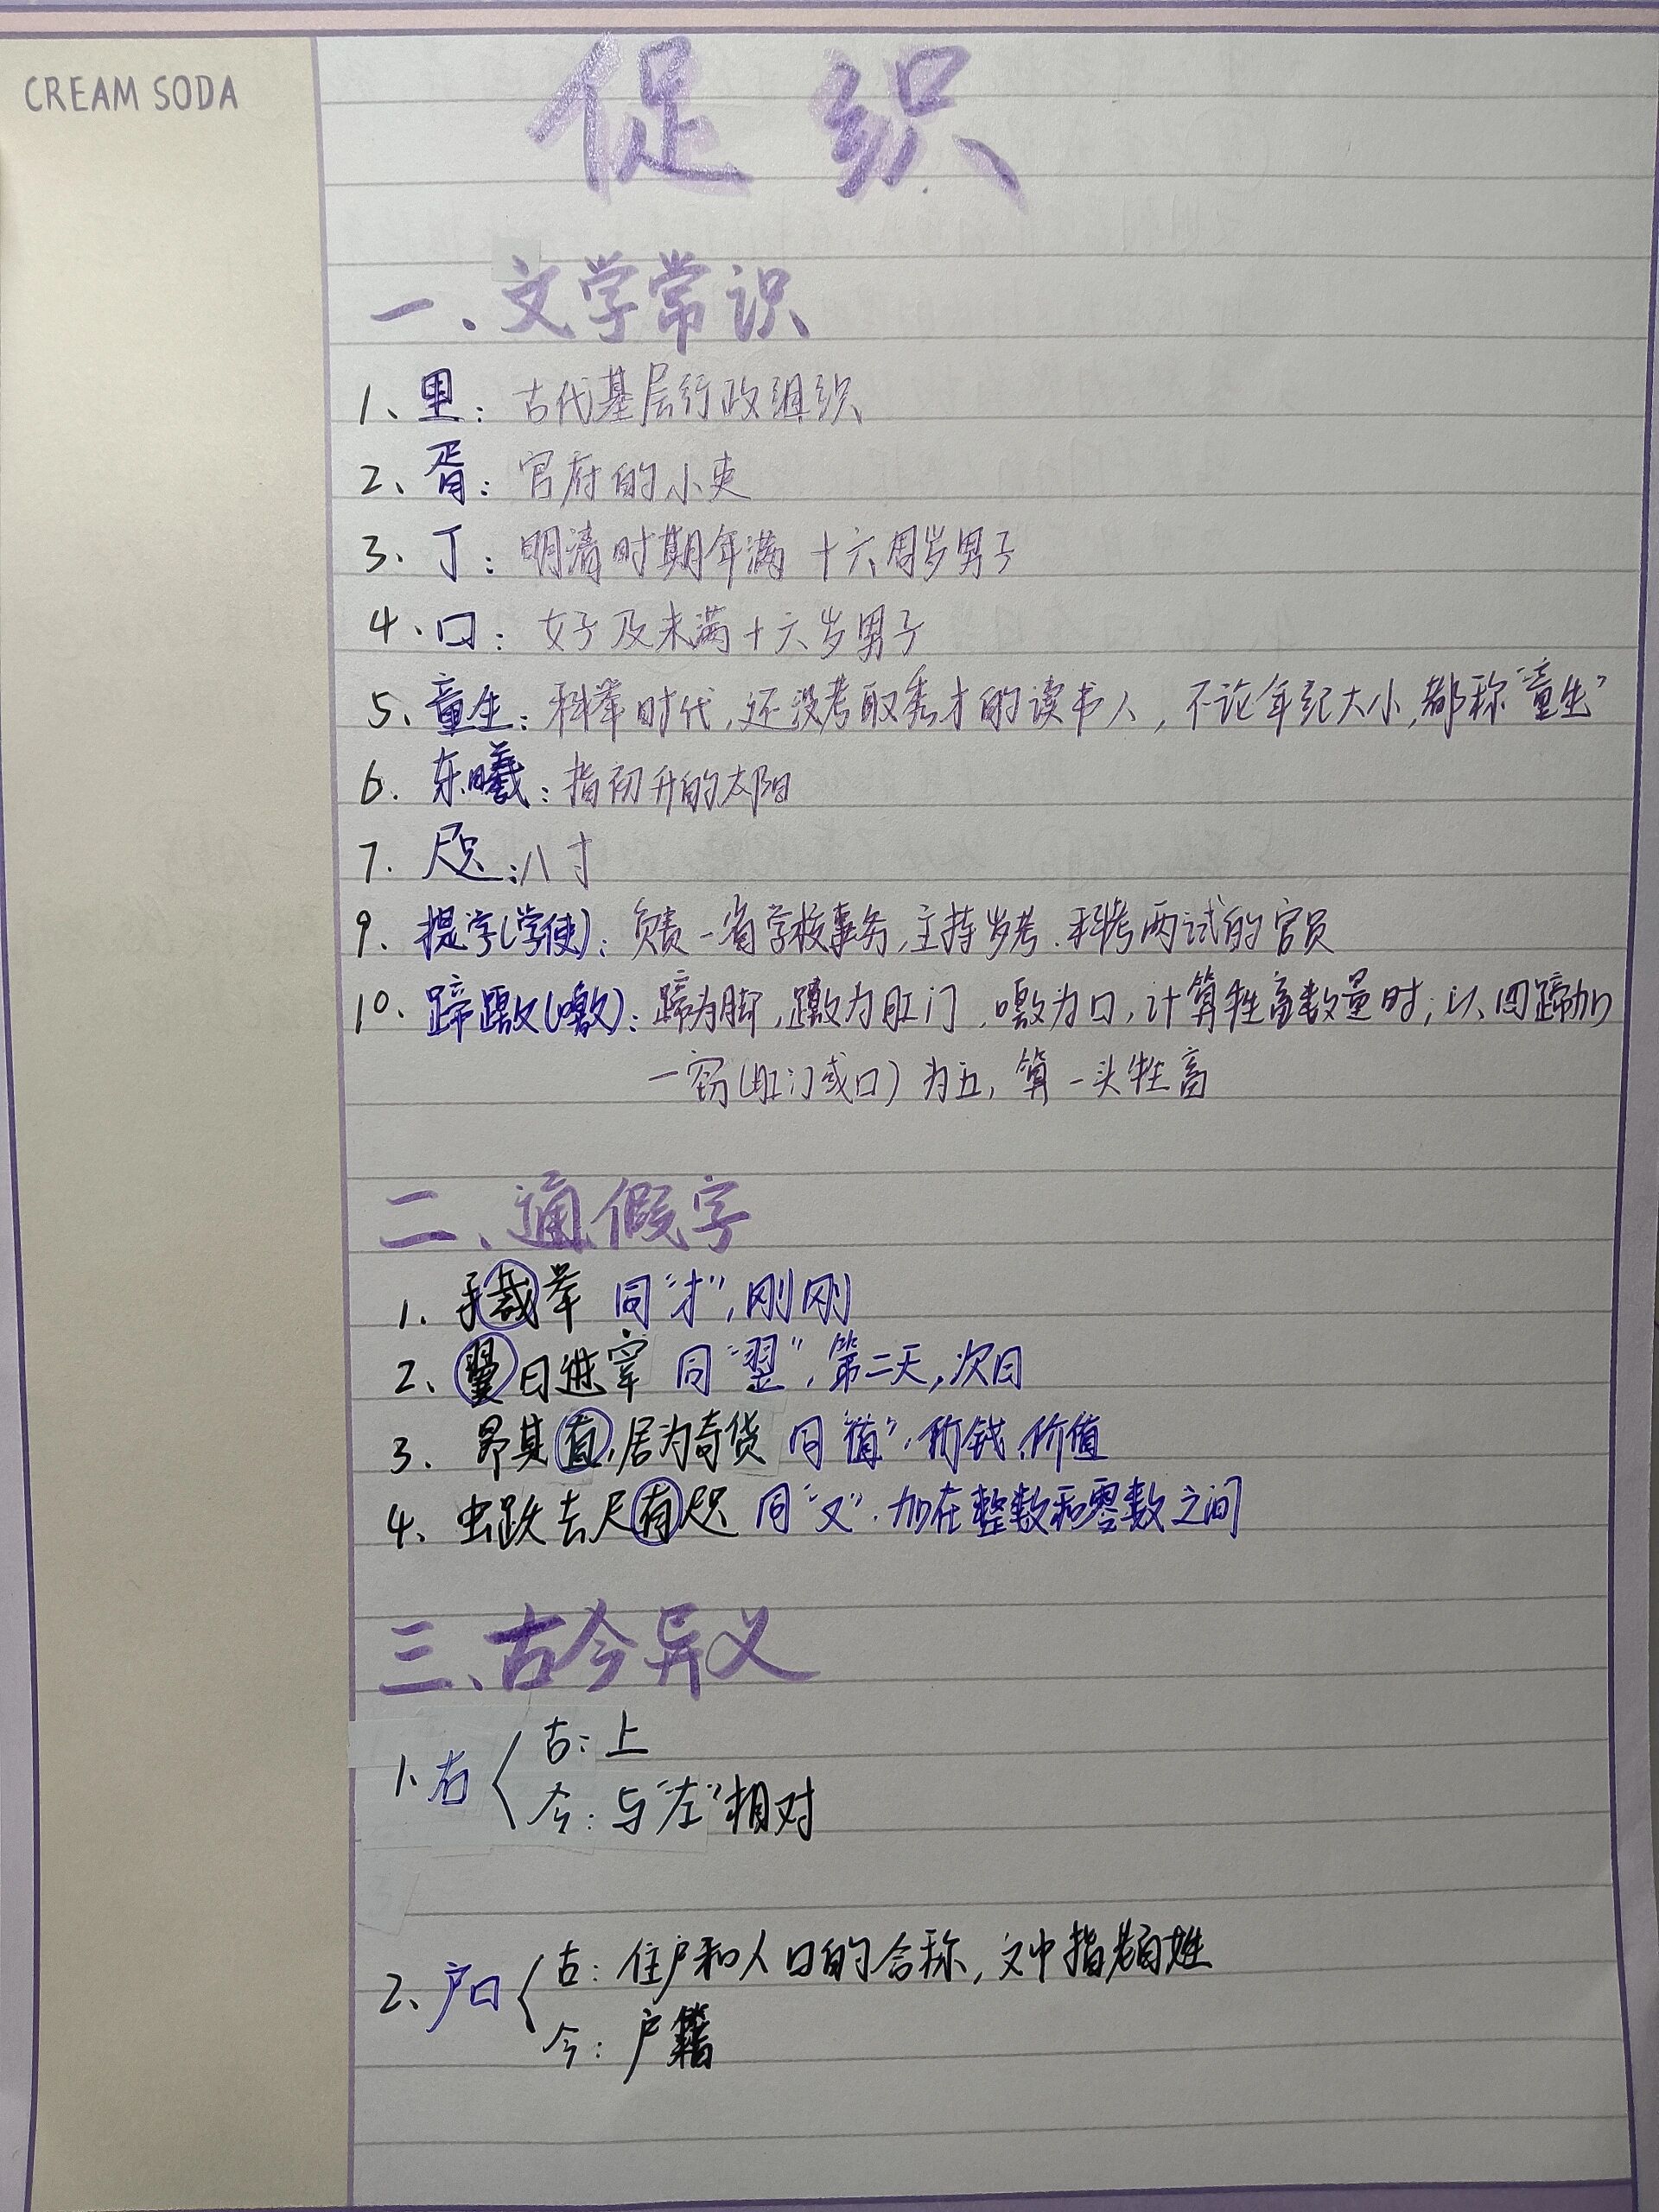 CREAM SODA
促织
一.文学常识
1、里：古代基层行政组织
2、胥：官府的小吏
3、丁：明清时期年满十六周岁男子
4、口：女子及未满十六岁男子
5、童生：科举时代,还没考取秀才的读书人,不论年纪大小,都称“童生”
6.东曦：指初升的太阳
7.咫：八寸
9、提学(学使)：负责一省学校事务,主持岁考、科考两试的官员
10、蹄躈(噭)：蹄为脚,躈为肛门,噭为口,计算牲畜数量时,以四蹄加
一窍(肛门或口)为五,算一头牲畜
二、通假字
1.手裁举 同“才”,刚刚
2、翼日进宰 同“翌”,第二天,次日
3.昂其直,居为奇货 同“值”,价钱,价值
4、虫跌去尺有咫 同“又”,加在整数和零数之间
三、古今异义
1、右
古：上
今：与“左”相对
2、户口
古：住户和人口的合称,文中指老百姓
今：户籍